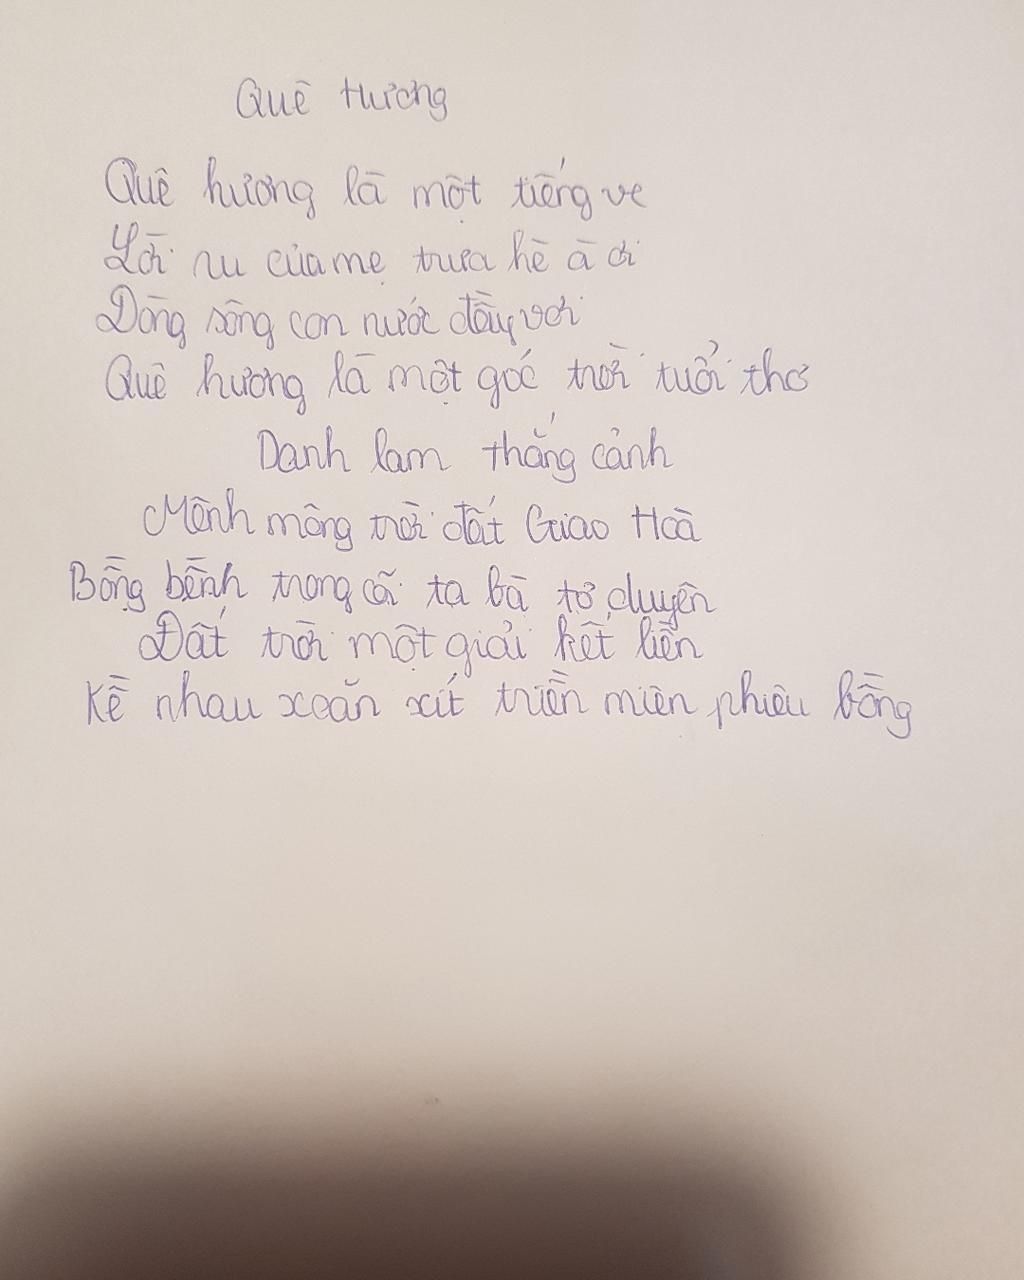 Quê Hương
Quê hương là một tiếng ve
Lời ru của mẹ trưa hè à ơi
Dòng sông con nước đầy vơi
Quê hương là một góc trời tuổi thơ
Danh lam thắng cảnh
Mênh mông trời đất Giao Hoà
Bồng bềnh trong cõi ta bà tơ duyên
Đất trời một giải kết liền
Kề nhau xoắn xít triền miên phiêu bồng